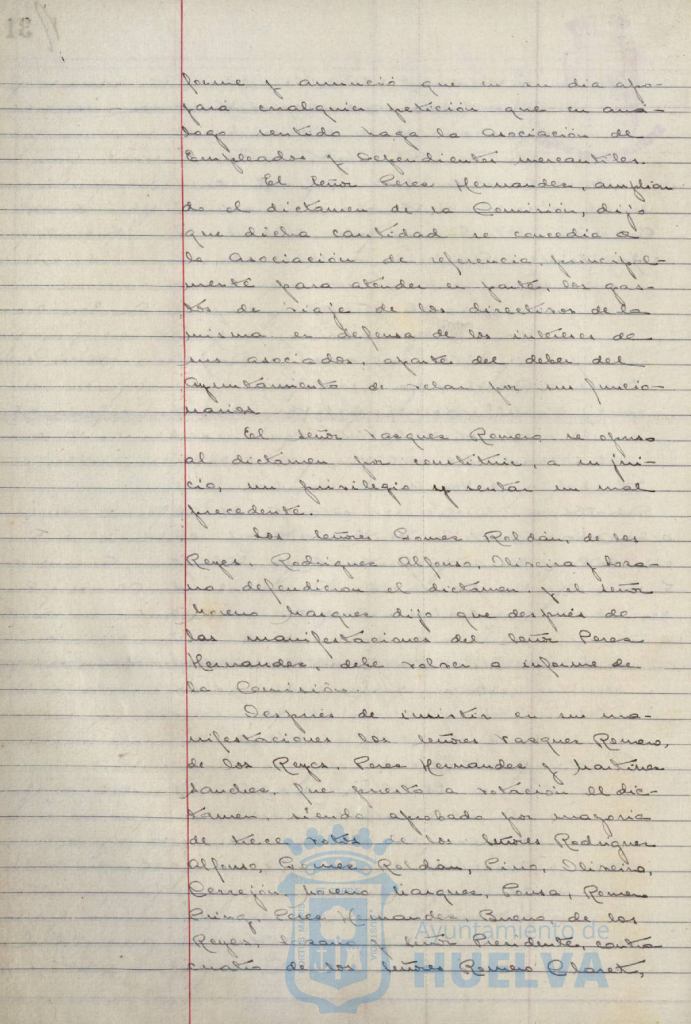 forme y anunció que en su dia apo-
yará cualquier petición que en aná-
logo sentido haga la Asociación de
Empleados y Dependientes mercantiles.
El Señor Perez Hernandez, amplian
do el dictámen de la Comisión, dijo
que dicha cantidad se concedia a
la Asociación de referencia, principal-
mente para atender en parte, los gas-
tos de viaje de los directivos de la
misma en defensa de los intereses de
sus asociados, aparte del deber del
Ayuntamiento de velar por sus funcio-
narios
El Señor Vazquez Romero se opuso
al dictámen por constituir, a su jui-
cio, un privilegio y sentar un mal
precedente.
Los Señores Gomez Roldán, de los
Reyes, Rodriguez Alfonso, Oliveira y Loza-
no defendieron el dictámen, y el Señor
Moreno Marquez dijo que después de
las manifestaciones del Señor Perez
Hernandez, debe volver a informe de
la Comisión.
Después de insistir en sus ma-
nifestaciones los Señores Vazquez Romero,
de los Reyes, Perez Hernandez y Martinez
Sanchez, fue puesto a votación el dic-
tamen, siendo aprobado por mayoria
de trece votos de los Señores Rodriguez
Alfonso, Gomez Roldán, Pino, Oliveira,
Cerrejón, Moreno Marquez, Ponsa, Romero
Perez Hernandez, Bueno, de los
Reyes, Lozano y Señor Presidente, contra
cuatro de los Señores Romero Claret,
Ayuntamiento de
HUELVA